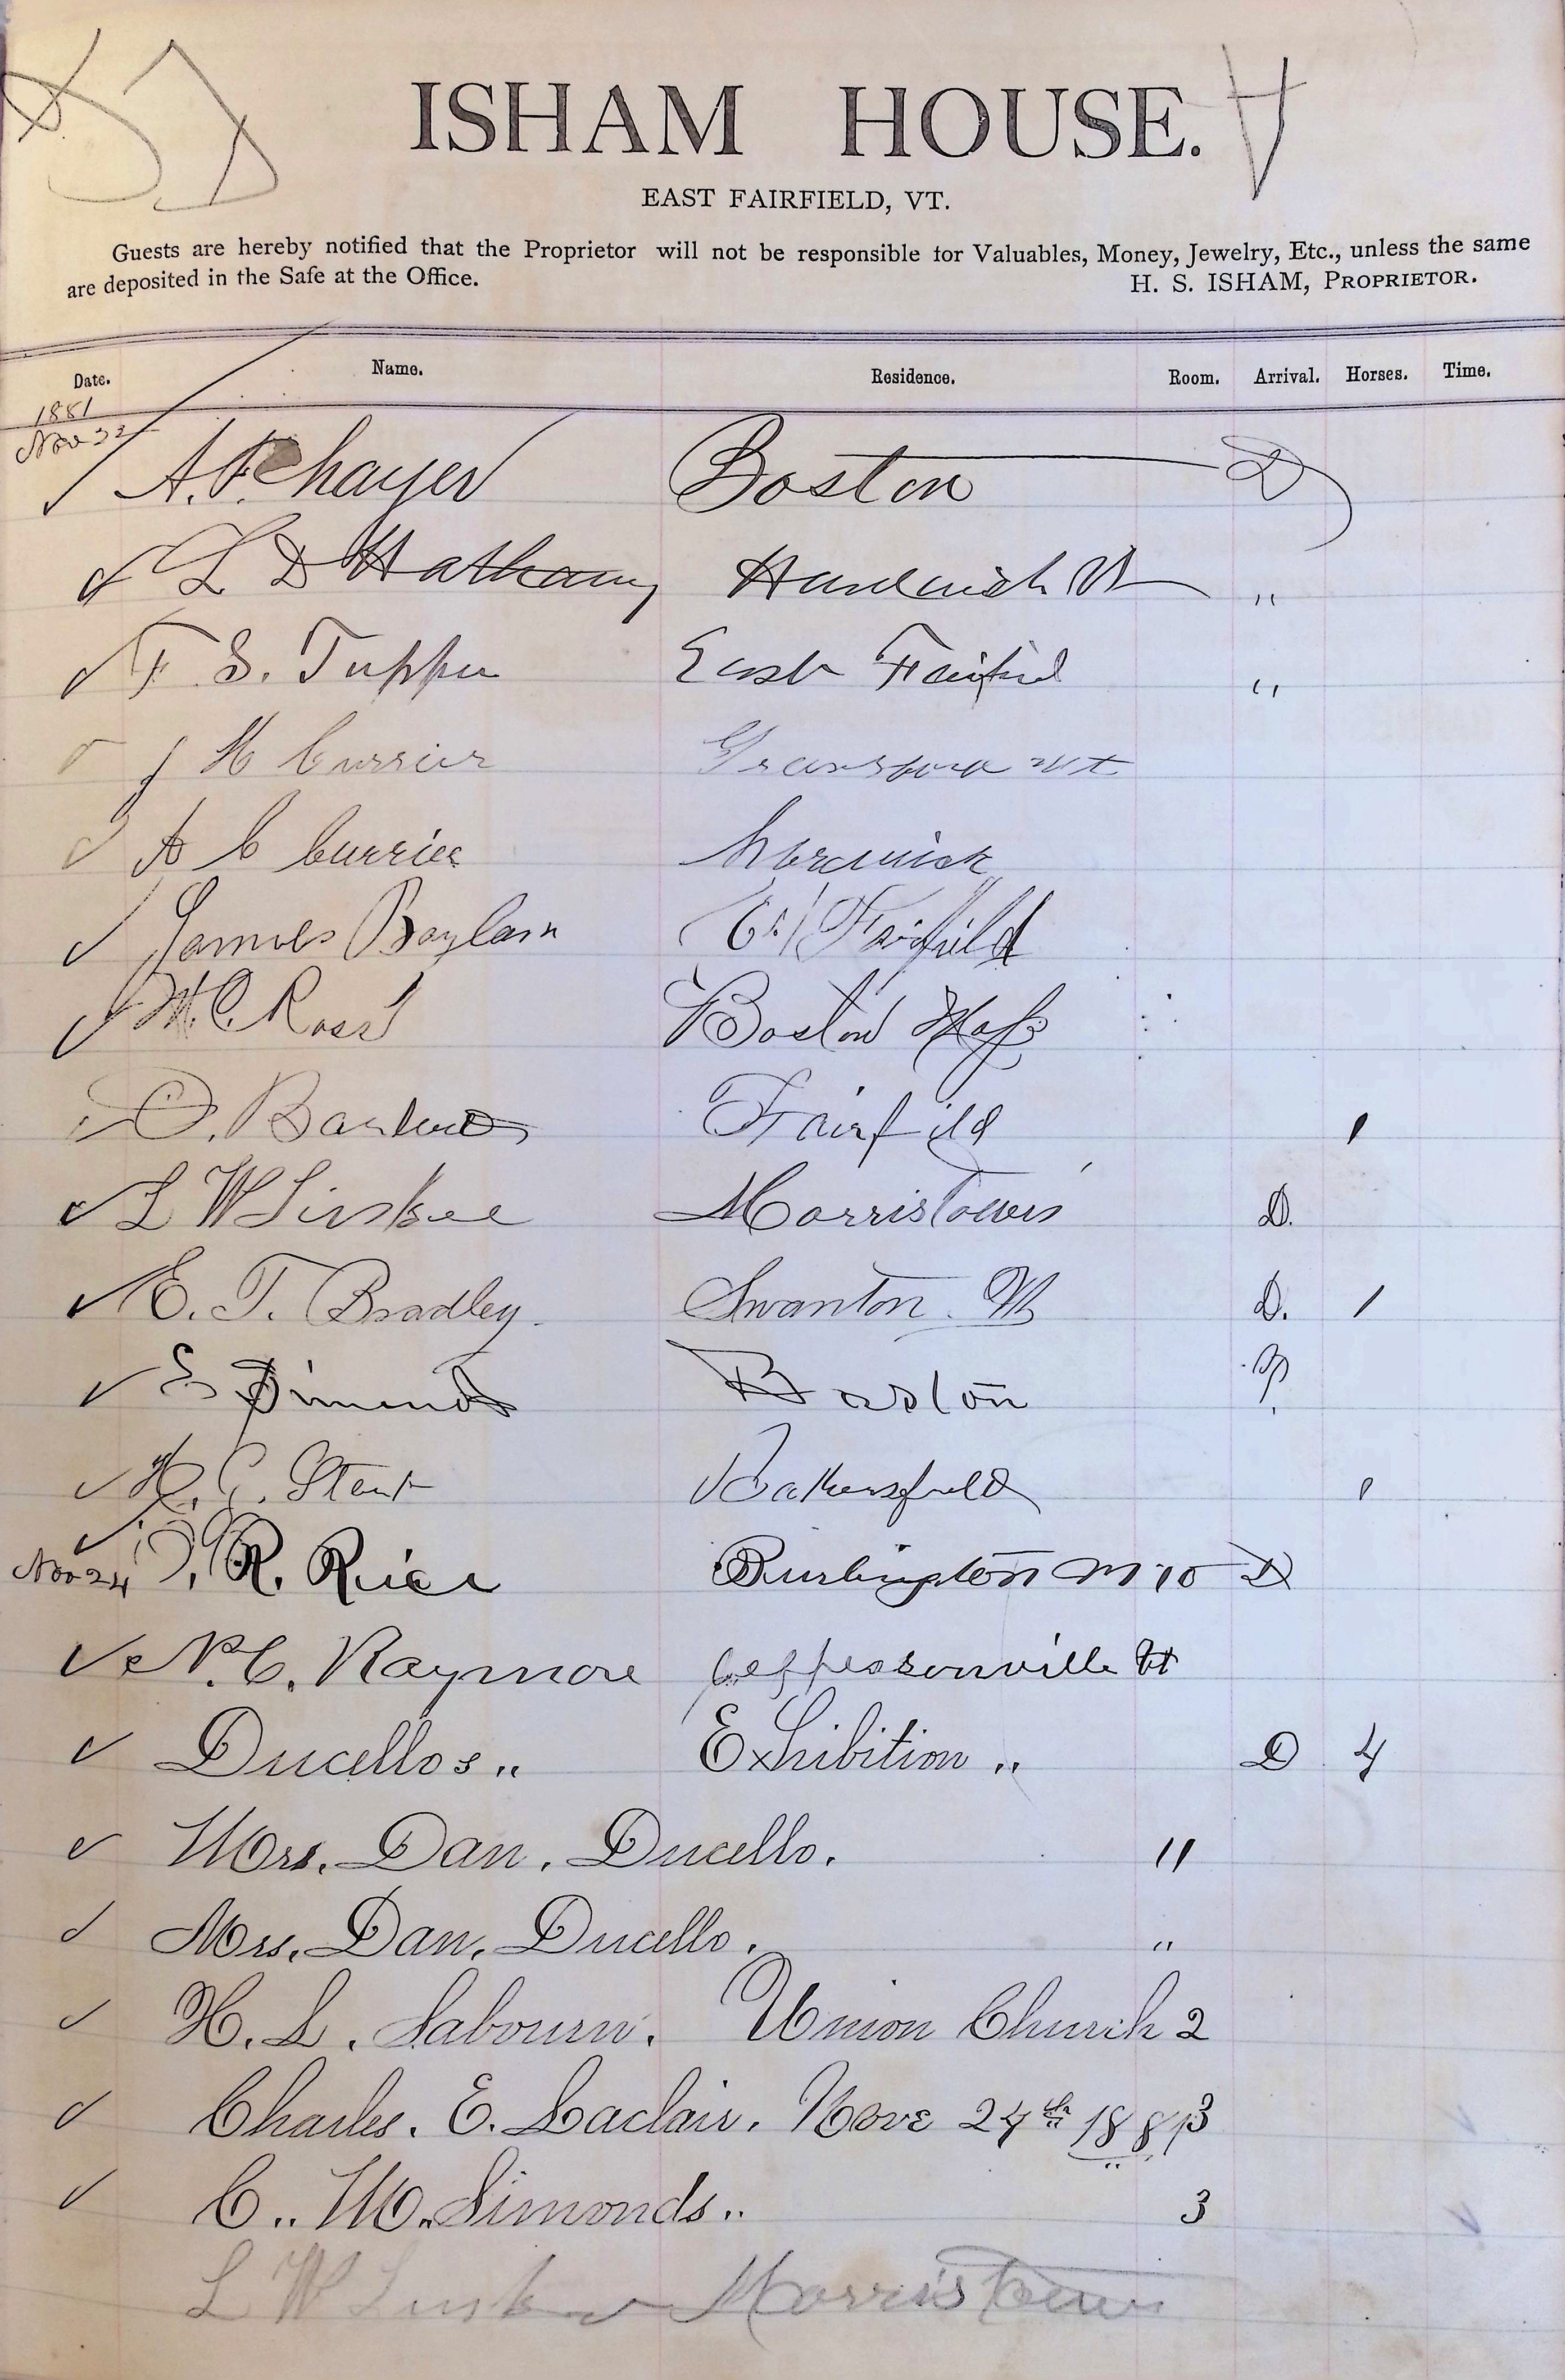 ISHAM HOUSE.
EAST FAIRFIELD, VT.
Guests are hereby notified that the Proprietor will not be responsible for Valuables, Money, Jewelry, Etc., unless the same
are deposited in the Safe at the Office. H. S. ISHAM, PROPRIETOR.
Date. Name. Residence. Room. Arrival. Horses. Time.
1881
Nov 23
A. Thayer Boston D
L D Hathaway Hardwick Vt "
F. S. Tupper East Fairfield "
J H Currier
A C Currier
James Boylan E. Fairfield
W. C. Ross Boston Mass
O. Fairfield 1
L W Morristown D.
E. T. Bradley. Swanton. Vt D. 1
E Dimond Boston
H. G. Bakersfield 1
Nov 24 R. Rice Burlington 10 D
N. C. Raymore Jeffersonville Vt
Ducellos " Exhibition " D 4
Mrs. Dan. Ducello. 11
Mrs. Dan. Ducello. "
H. L. Sabourn. Union Church 2
Charles. E. Laclair. Nove 24th 1881 3
C.. M. Simonds.. 3
L W Morristown